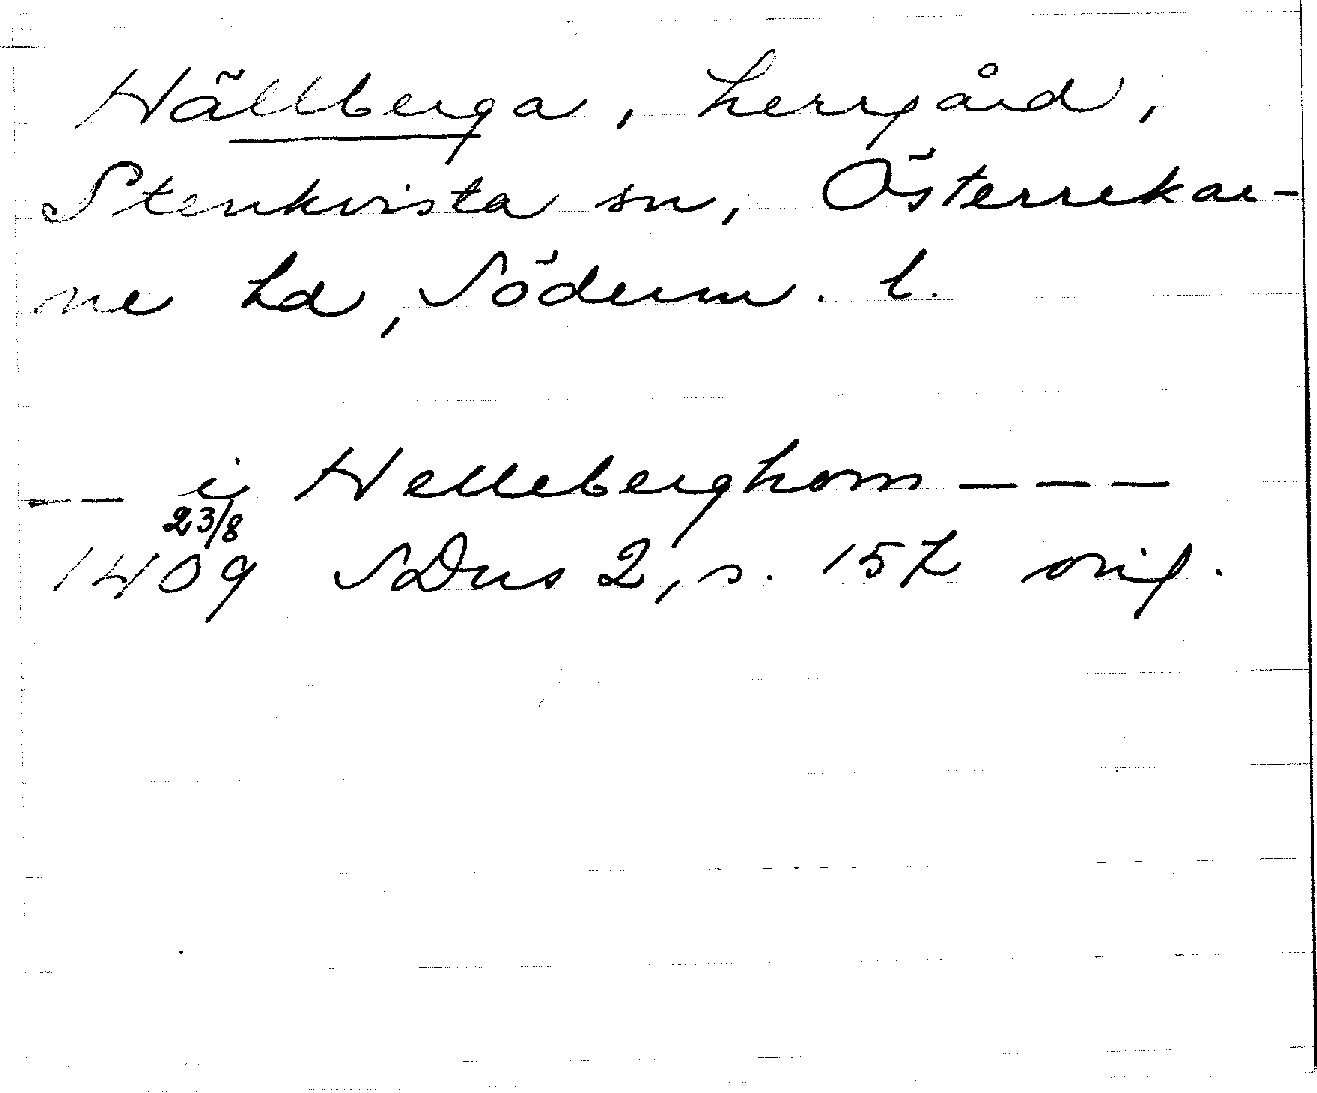 Hällberga, herrgård,
Stenkvista sn, Österrekar-
ne hd, Söderm. l.
-- i Helleberghom ---
23/8
1409 SDns 2, s. 152 orig.